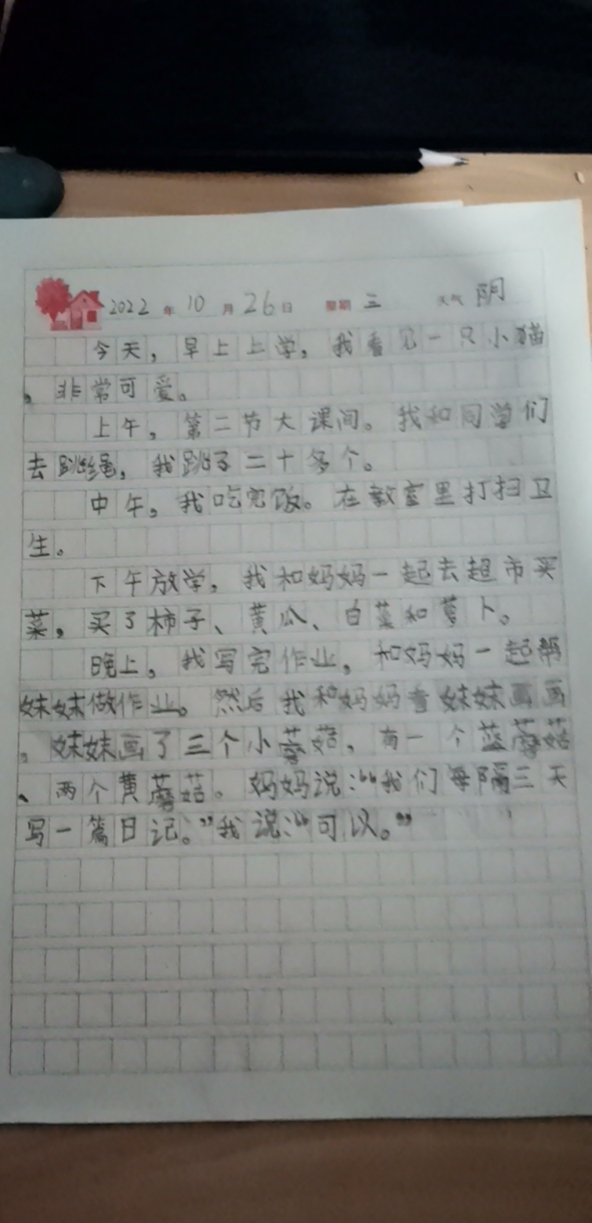 2022年10月26日 星期三 天气阴
今天，早上上学，我看见一只小猫
，非常可爱。
上午，第二节大课间。我和同学们
去跳绳，我跳了二十多个。
中午，我吃完饭。在教室里打扫卫
生。
下午放学，我和妈妈一起去超市买
菜，买了柿子、黄瓜、白菜和萝卜。
晚上，我写完作业，和妈妈一起帮
妹妹做作业。然后我和妈妈看妹妹画画
。妹妹画了三个小蘑菇，有一个蓝蘑菇
、两个黄蘑菇。妈妈说：“我们每隔三天
写一篇日记。”我说：“可以。”